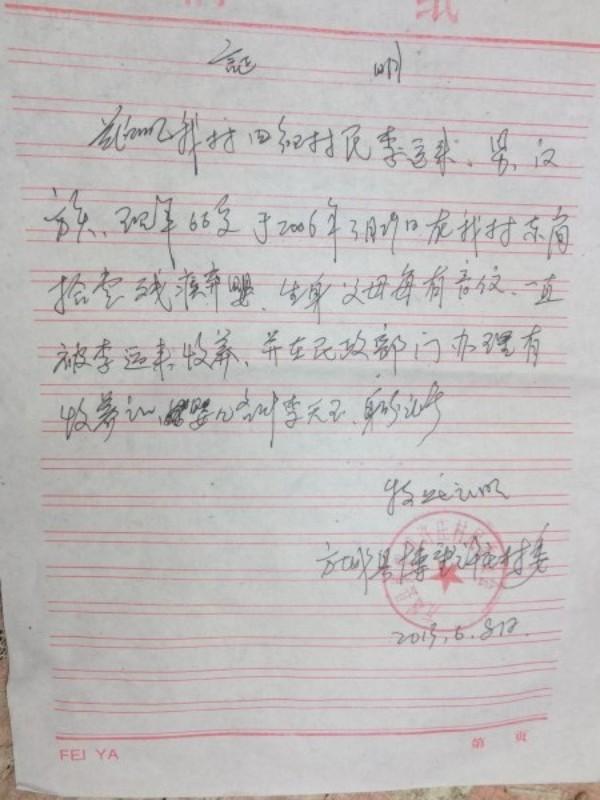 纸
证 明
兹证明我村四组村民李运来、男、汉
族、现年66岁于2006年3月29日在我村东岗
拾壹残疾弃婴、生身父母每有音信、一直
被李运来收养、并在民政部门办理有
收养证、婴儿名叫李天玉、身份证号
特此证明
方城县博望 村委
2015.6.8日.
FEI YA
第 页